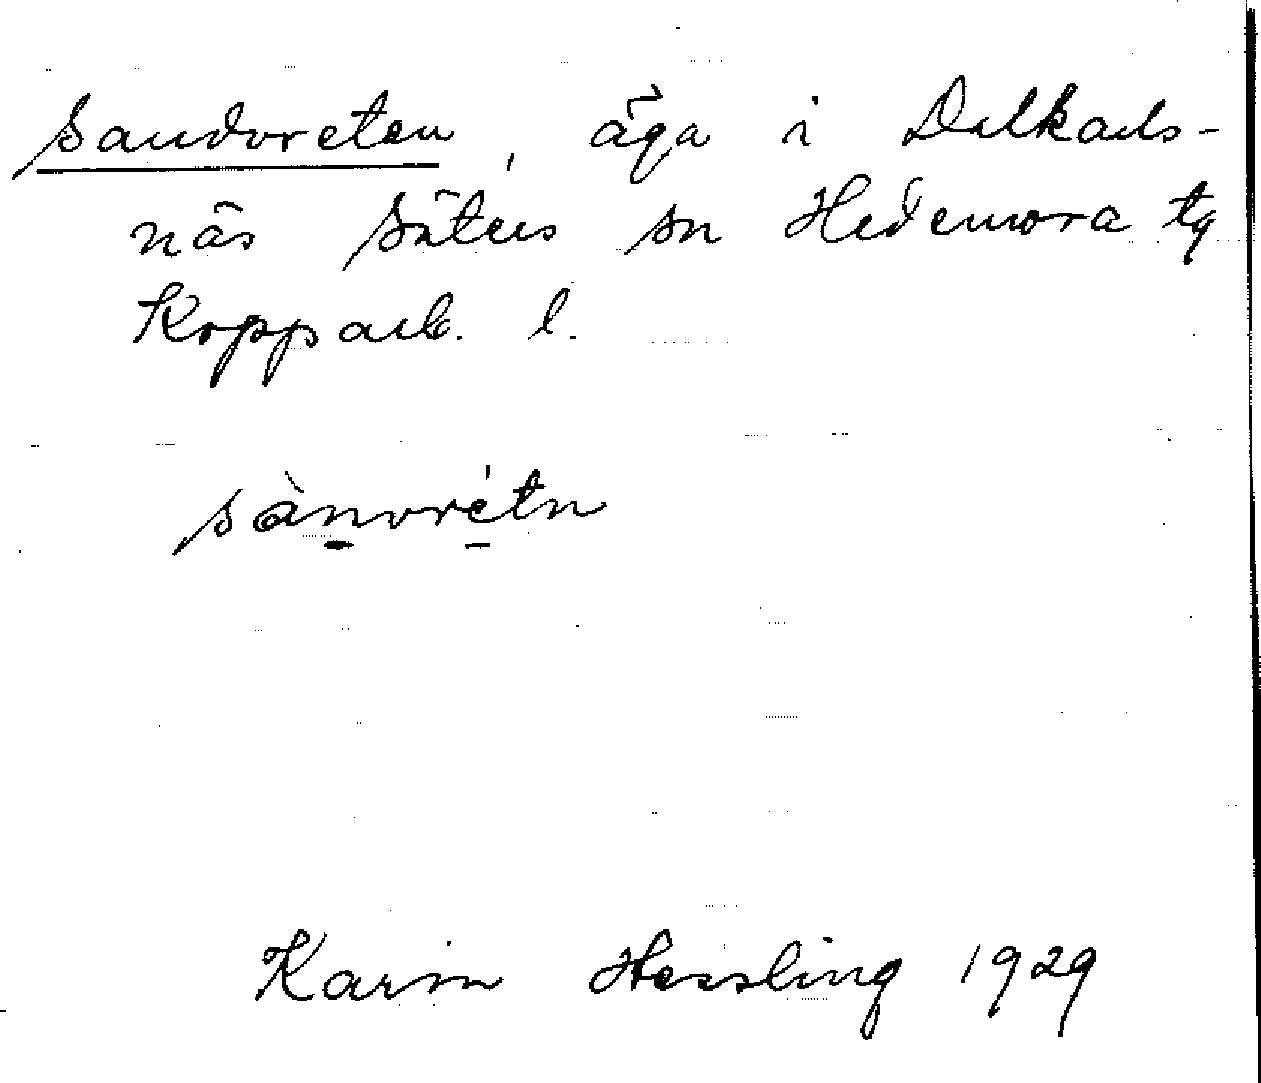 Sandvreten, äga i Dalkarls-
näs Säters sn Hedemora tg
Kopparb. l.
sànvrétn
Karin Hessling 1929